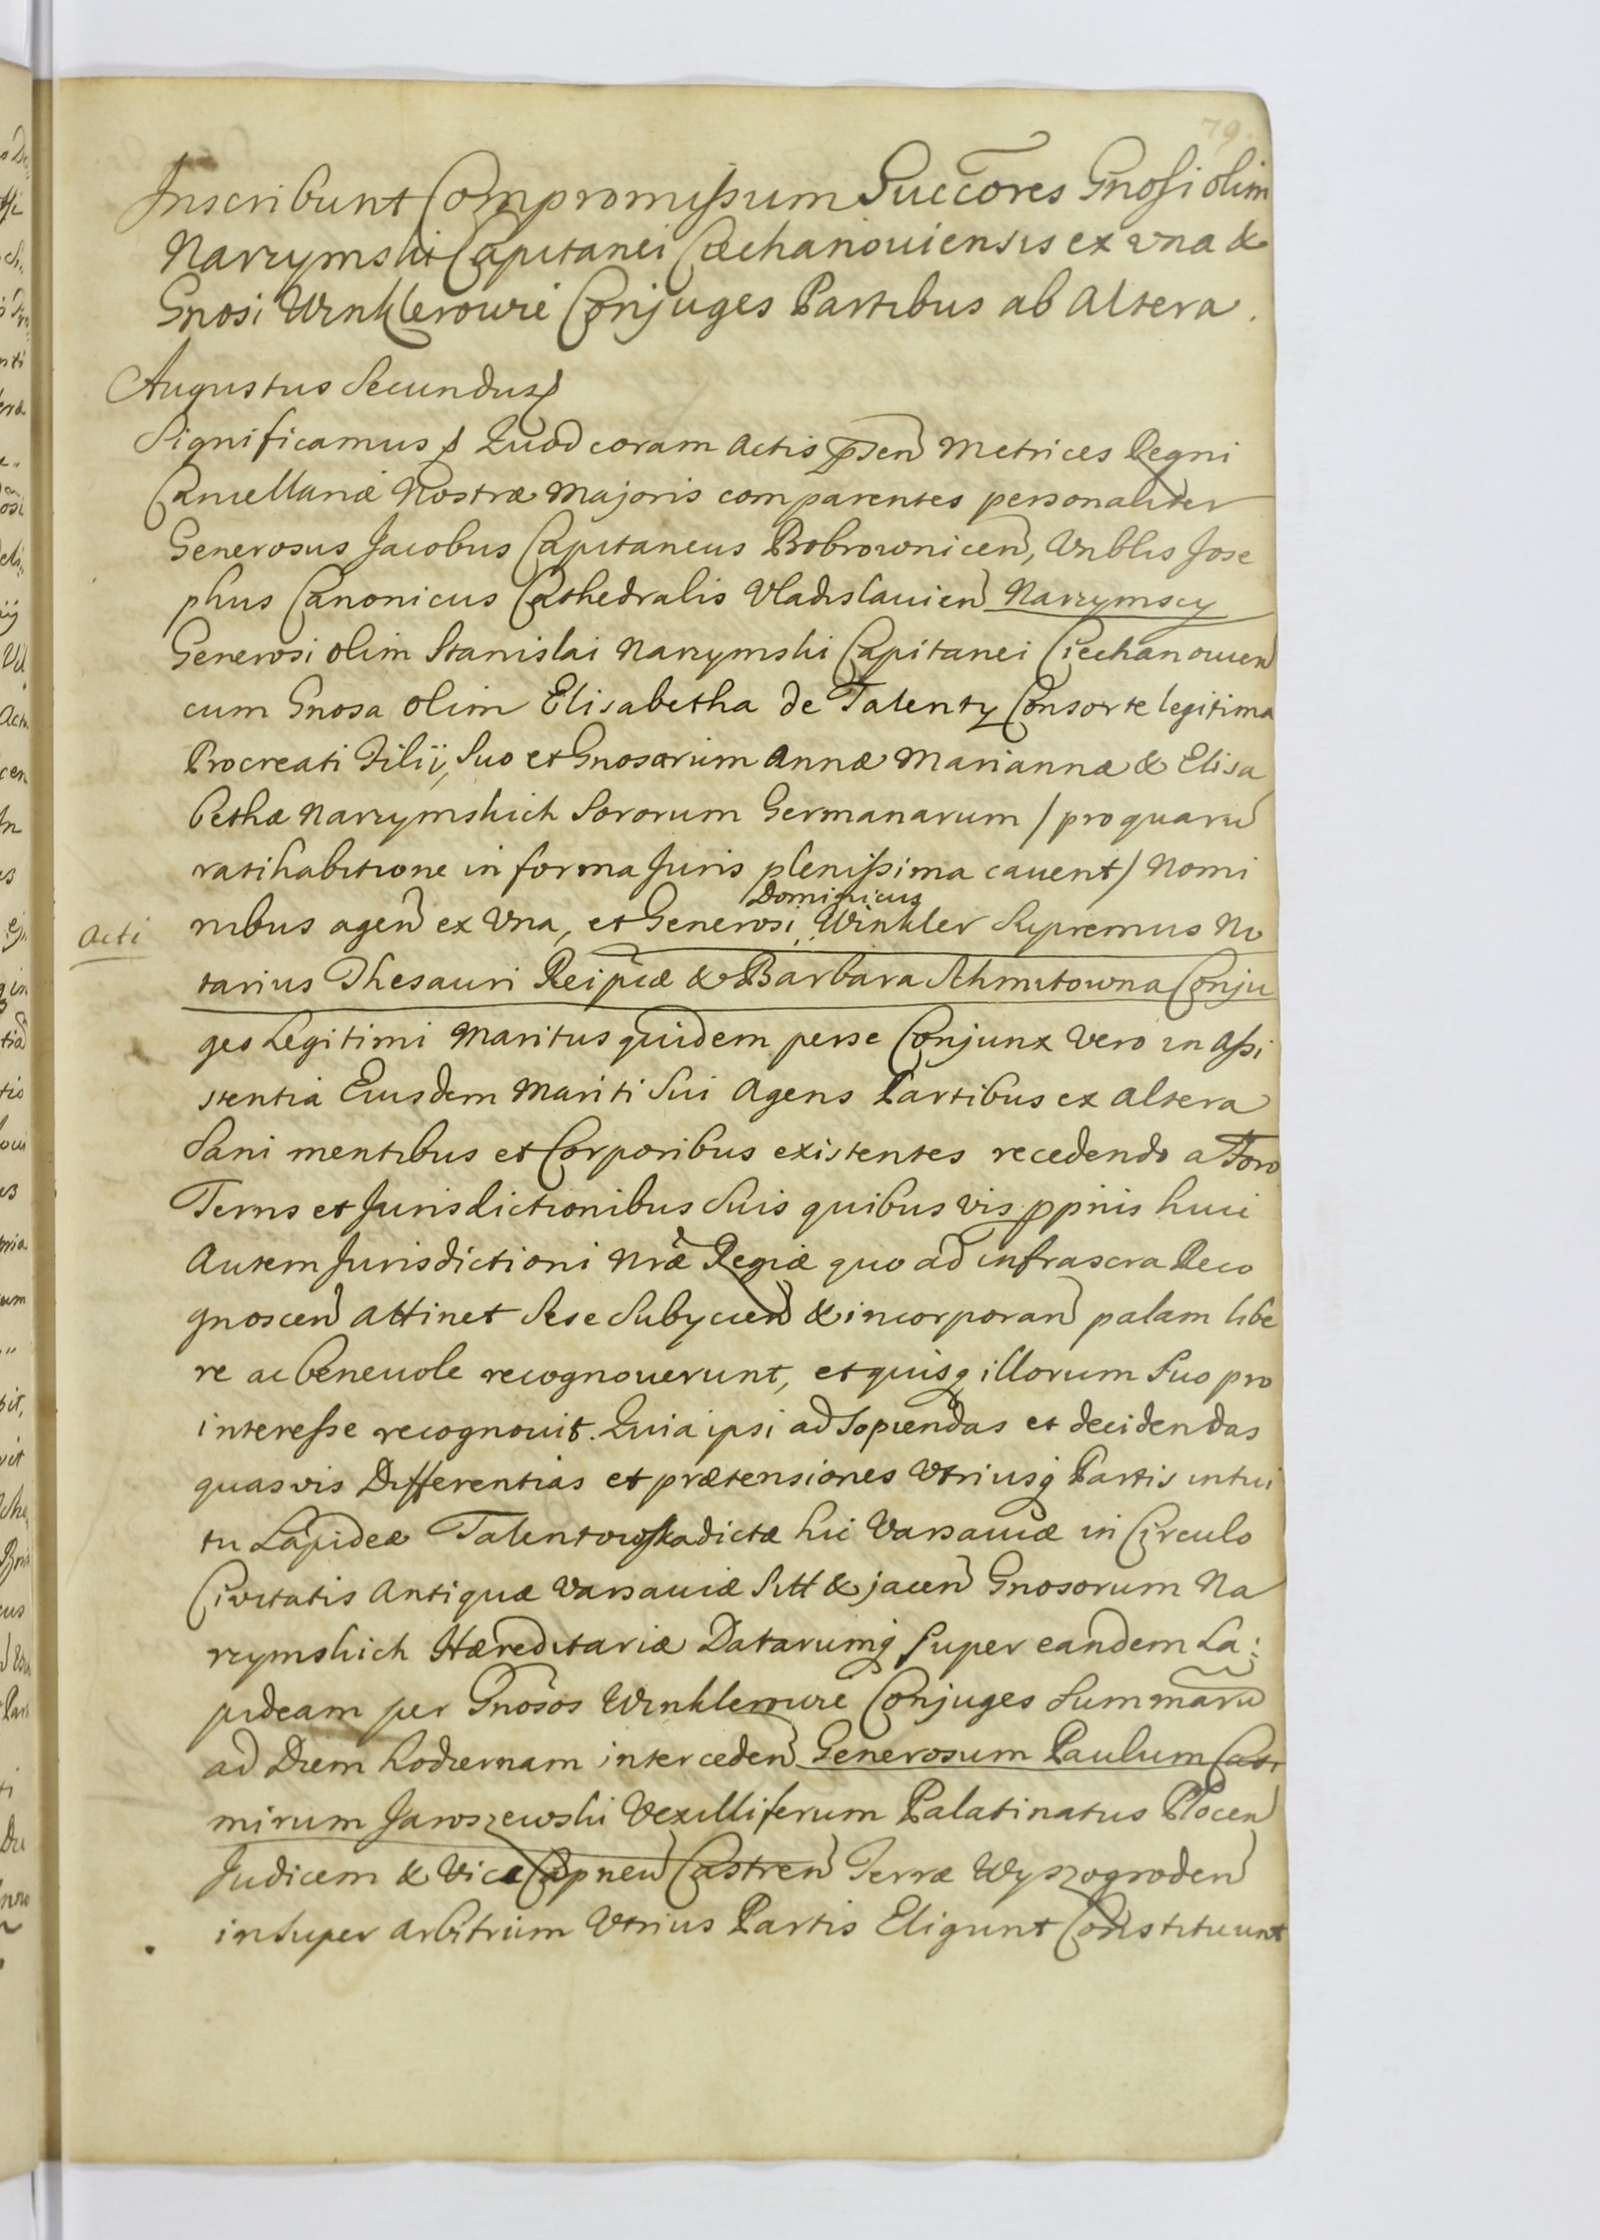 79.
Inscribunt Compromissum Succores Gnosi olim
Narzymski Capitanei Ciechanouiensis ex vna &
Gnosi Winklerowie Conjuges Partibus ab Altera.
Augustus Secundus
Significamus Quod coram Actis pñsen Metrices Regni
Cancellariæ Nostræ Majoris comparentes personaliter
Generosus Jacobus Capitaneus Bobrownicen, Vnblis Jose
phus Canonicus Cathedralis Vladislauien Narzymscy
Generosi olim Stanislai Narzymski Capitanei Ciechanouien
cum Gnosa olim Elisabetha de Talenty Consorte legitima
Procreati Filij, Suo et Gnosarum Annæ Mariannæ & Elisa
bethæ Narzymskich Sororum Germanarum / pro quaru
ratihabitione in forma Juris plenissima cauent / Nomi
Dominicus
Acti
nibus agen ex Vna, et Generosi Winkler Supremus No
tarius Thesauri Reipcæ & Barbara Schmitowna Conju
ges Legitimi Maritus quidem per se Conjunx Vero in Assi
stentia Eiusdem Mariti Sui Agens Partibus ex Altera
Sani mentibus et Corporibus existentes recedendo a Foro
Terris et Jurisdictionibus Suis quibus vis pprijs huic
Autem Jurisdictioni Nræ Regiæ quo ad infrascra Reco
gnoscen Attinet Sese Subijcien & incorporan palam libe
re ac beneuole recognouerunt, et quisq illorum Suo pro
interesse recognouit. Quia ipsi ad Sopiendas et decidendas
quasvis Differentias et prætensiones Vtriusq Partis intui
tu Lapideæ Talentowska dictæ hic Varsauiæ in Circulo
Civitatis Antiquæ Varsauiæ Sitt & jacen Gnosorum Na
rzymskich Hæreditariæ Datarumq Super eandem La:
pideam per Gnosos Winklerowie Conjuges Summaru
ad Diem hodiernam interceden Generosum Paulum Casi
mirum Jaroszewski Vexilliferum Palatinatus Plocen
Judicem & Vice Capneu Castren Terræ Wyszogroden
in Super Arbitrium Vtrius Partis Eligunt Constituunt